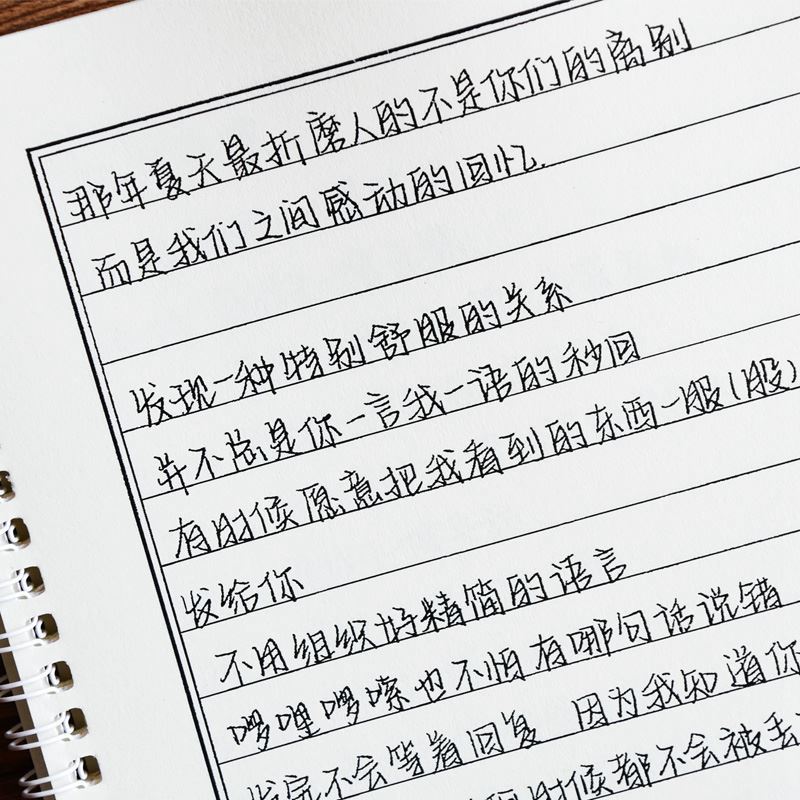 那年夏天最折磨人的不是你们的离别
而是我们之间感动的回忆.
发现一种特别舒服的关系
并不总是你一言我一语的秒回
有时候愿意把我看到的东西一服(股)
发给你
不用组织好精简的语言
啰哩啰嗦也不怕有哪句话说错
发完不会等着回复 因为我知道你
时候都不会被丢